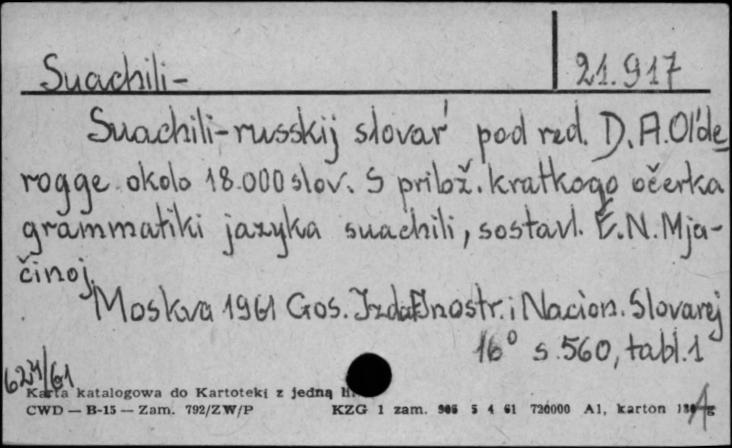 Suachili-
21.917
Suachili-russkij slovar' pod red. D.A.Ol'de
rogge okolo 18.000 slov. S prilož. kratkogo očerka
grammatiki jazyka suachili, sostavl. É.N. Mja-
činoj
Moskva 1961 Gos. Izdat Inostr. i Nacion. Slovarej
16° s. 560, tabl. 1
627/61
Karta katalogowa do Kartoteki z jedną
CWD — B-15 — Zam. 792/ZW/P KZG 1 zam. 5 4 61 720000 A1, karton
A